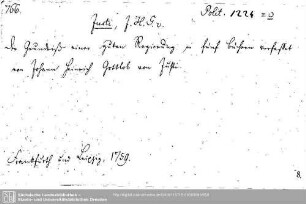 766.
Polit. 1224 =2
Justi, J. H. G. v.
Der Grundriß einer guten Regierung in fünf Büchern verfasset
von Johann Heinrich Gottlob von Justi
Frankfurth und Leipzig, 1759.
8.
Sächsische Landesbibliothek -
Staats- und Universitätsbibliothek Dresden